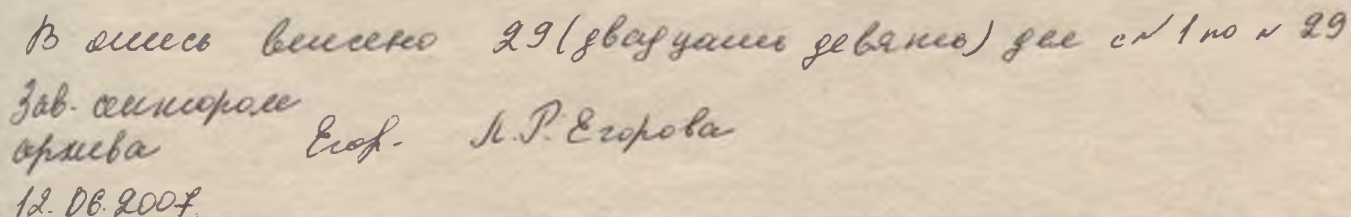 В опись внесено 29 (двадцать девять) дел с № 1 по № 29
Зав. сектором
архива Егор. Л.Р. Егорова
12.06.2007.